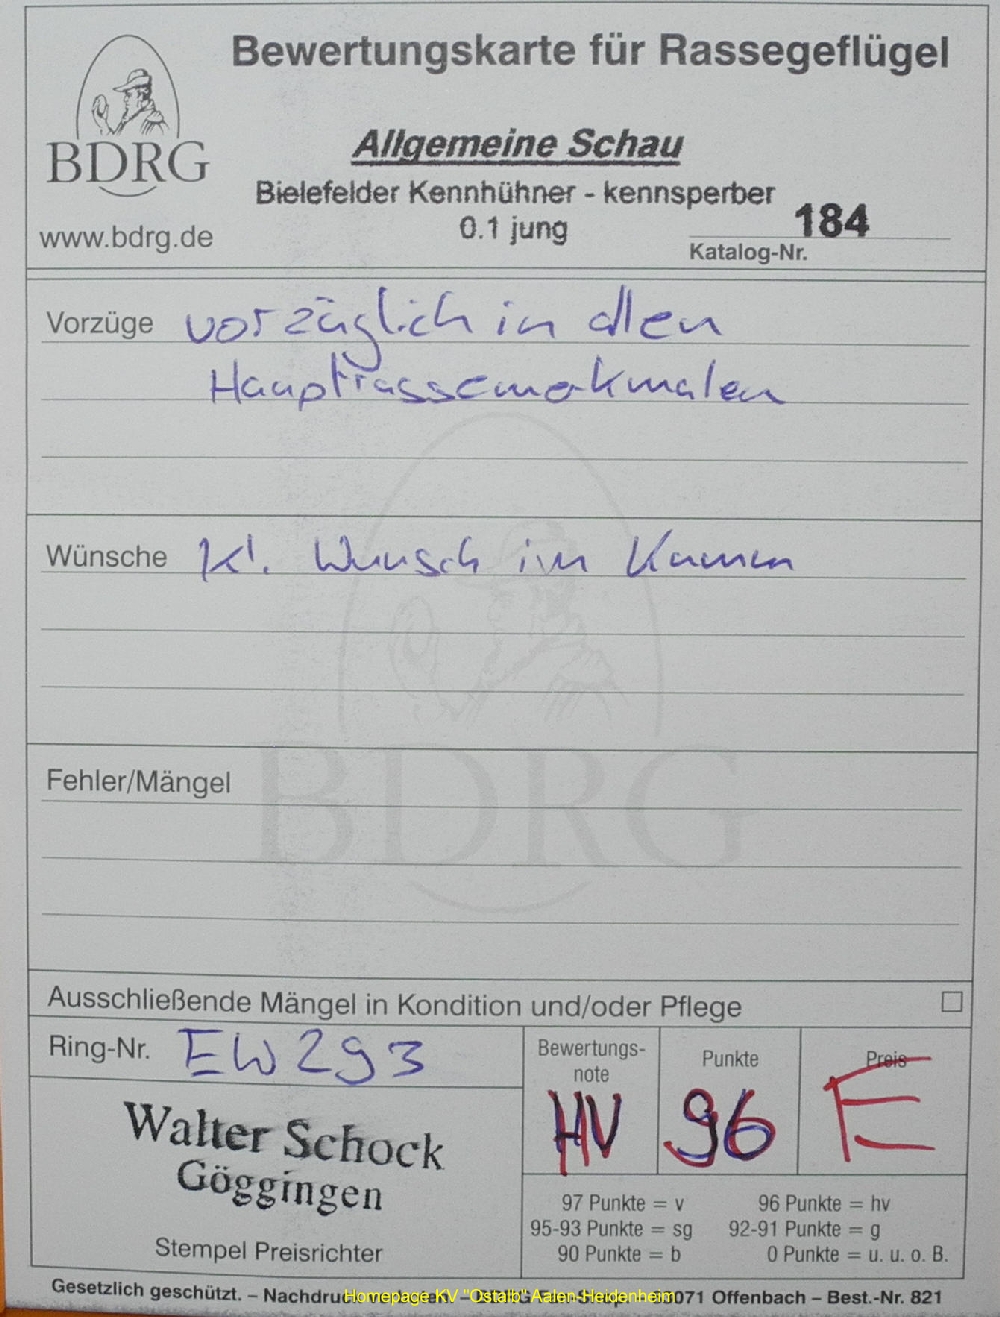 Bewertungskarte für Rassegeflügel
BDRG
www.bdrg.de
Allgemeine Schau
Bielefelder Kennhühner - kennsperber
0.1 jung
184
Katalog-Nr.
Vorzüge vorzüglich in allen
Hauptrassemerkmalen
Wünsche kl. Wunsch im Kamm
BDRG
Fehler/Mängel
Ausschließende Mängel in Kondition und/oder Pflege
Ring-Nr. EW 293
Bewertungs-
note
HV
Punkte
96
Preis
E
Walter Schock
Göggingen
Stempel Preisrichter
97 Punkte = v 96 Punkte = hv
95-93 Punkte = sg 92-91 Punkte = g
90 Punkte = b 0 Punkte = u. u. o. B.
Gesetzlich geschützt. – Offenbach – Best.-Nr. 821
Homepage KV "Ostalb" Aalen-Heidenheim